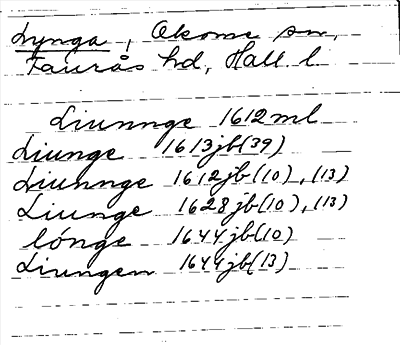 Lynga, Okome sn,
Faurås hd, Hall. l.
Liunnge 1612 ml
Liunge 1613 jb (39)
Liunnge 1612 jb (10), (13)
Liunge 1628 jb (10), (13)
lónge 1644 jb (10)
Liungen 1644 jb (13)